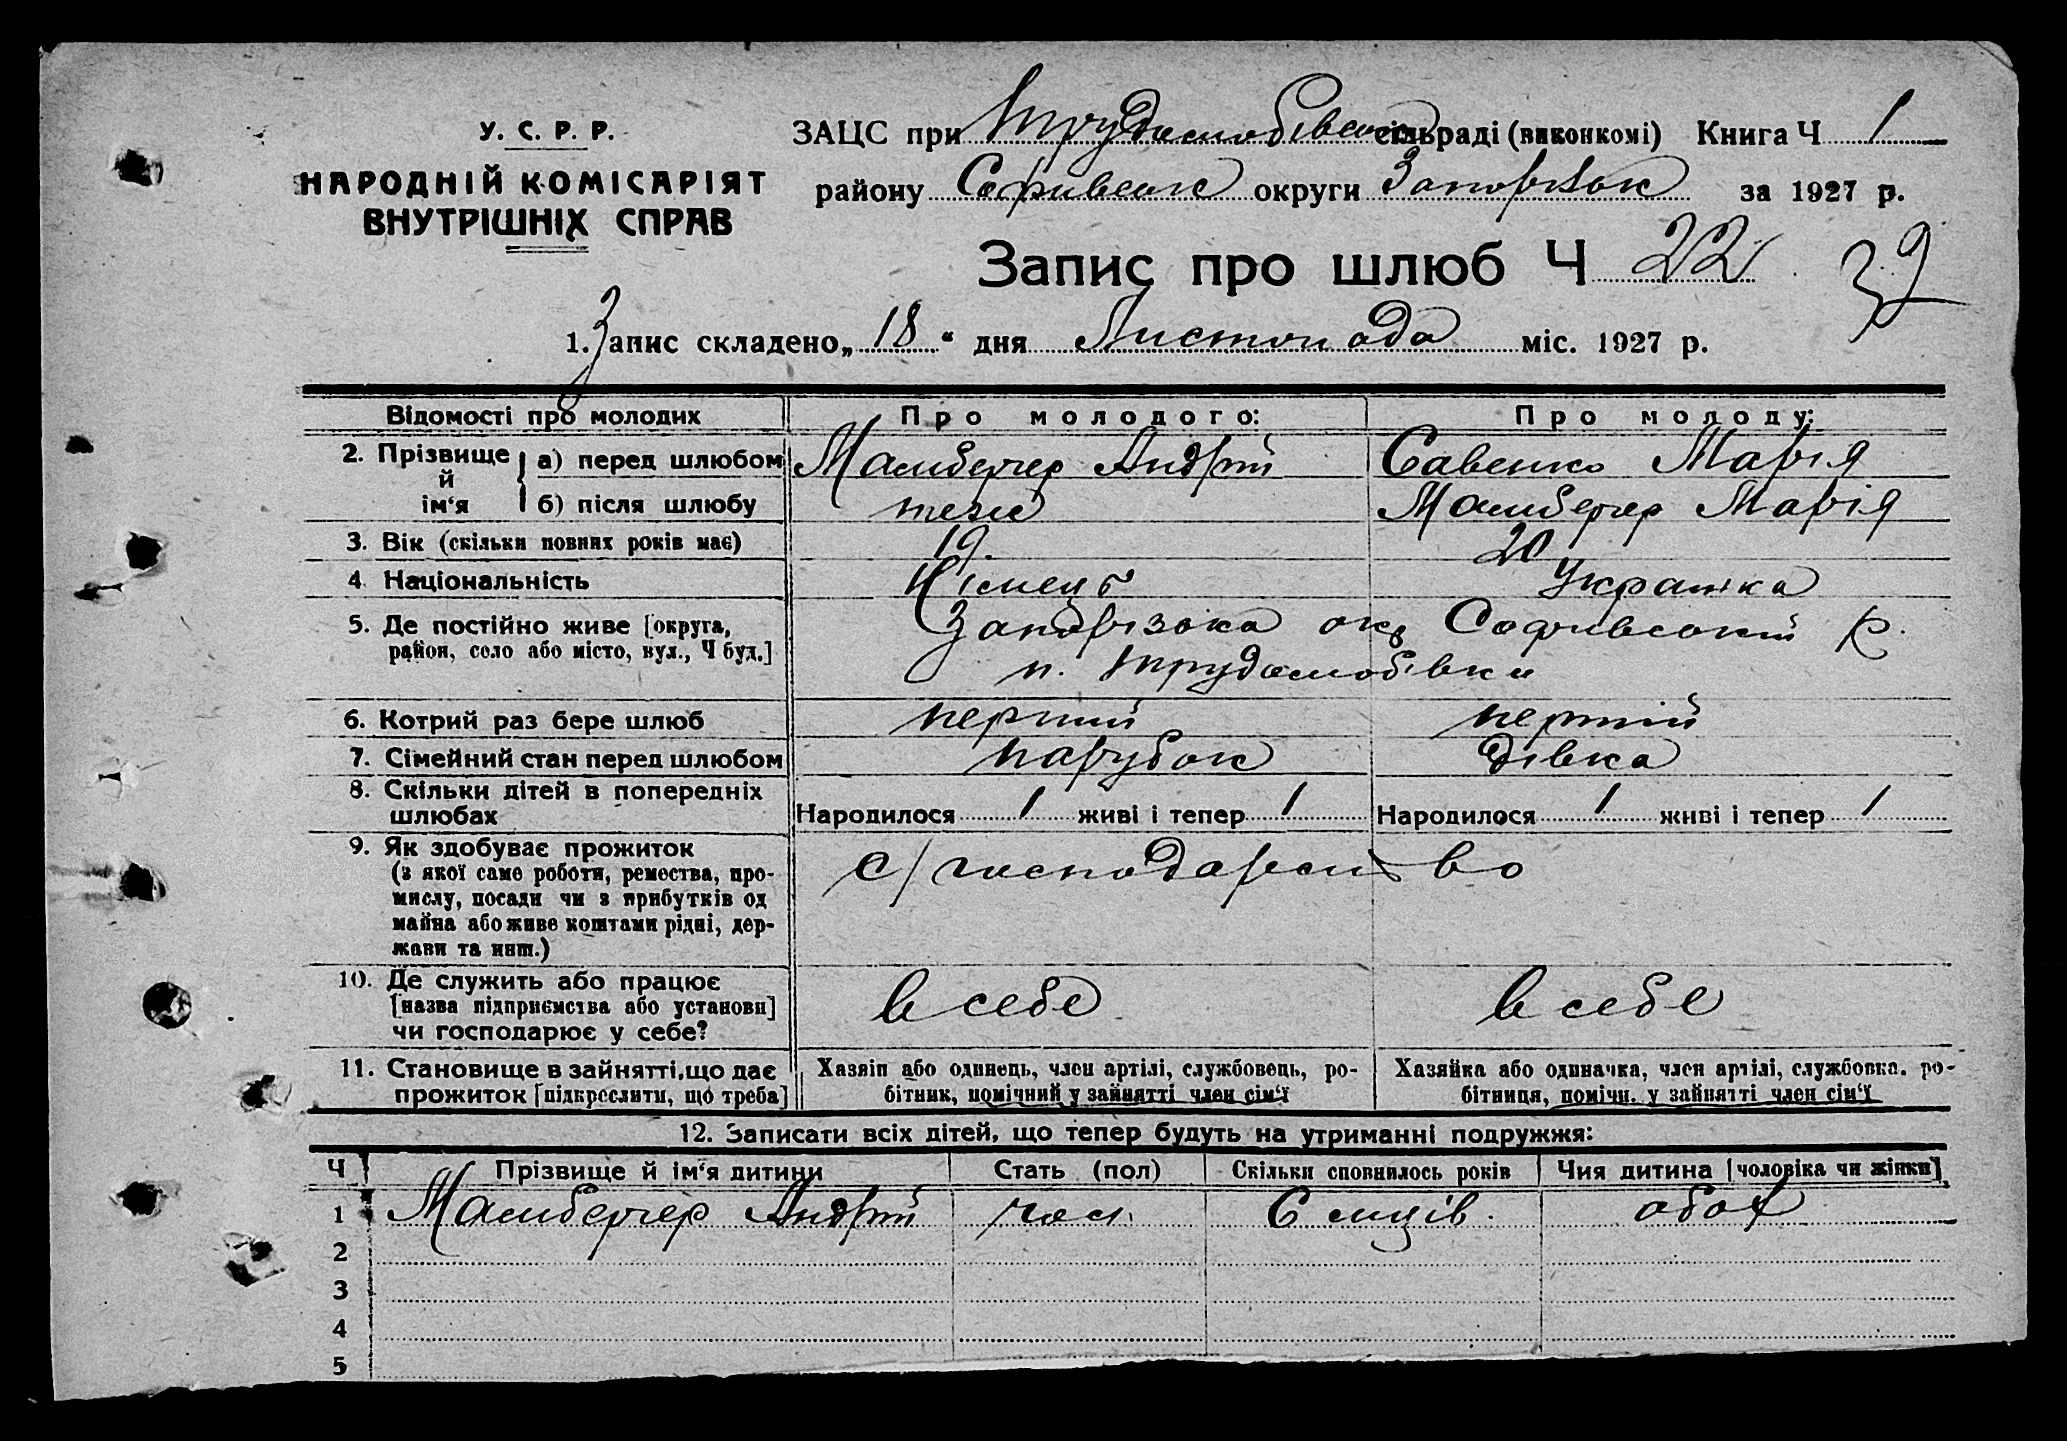 У. С. Р. Р.
НАРОДНІЙ КОМІСАРІЯТ
ВНУТРІШНІХ СПРАВ
ЗАЦС при Трудолюбівськ сільраді (виконкомі) Книга Ч 1
району Софиевськ округи Запоріжж за 1927 р.
Запис про шлюб Ч 22
39
1. Запис складено „18“ дня Листопада міс. 1927 р.
Відомості про молодих
Про молодого:
Про молоду:
2. Прізвище й ім‘я
а) перед шлюбом
Мамбергер Андрій
Савенко Марія
б) після шлюбу
теж
Мамбергер Марія
3. Вік (скільки повних років має)
19.
20
4. Національність
Німець
Українка
5. Де постійно живе [округа,
район, село або місто, вул., Ч буд.]
Запорізька окр Софиевський р.
п. Трудолюбівки
6. Котрий раз бере шлюб
перший
перший
7. Сімейний стан перед шлюбом
парубок
дівка
8. Скільки дітей в попередніх
шлюбах
Народилося 1 живі і тепер 1
Народилося 1 живі і тепер 1
9. Як здобуває прожиток
(з якої саме роботи, ремества, про-
мислу, посади чи з прибутків од
майна або живе коштами рідні, дер-
жави та инш.)
с/господарство
10. Де служить або працює
[назва підприємства або установи]
чи господарює у себе?
в себе
в себе
11. Становище в зайнятті, що дає
прожиток [підкреслити, що треба]
Хазяїн або одинець, член артілі, службовець, ро-
бітник, помічний у зайнятті член сім‘ї
Хазяйка або одиначка, член артілі, службовка, ро-
бітниця, помічн. у зайнятті член сім‘ї
12. Записати всіх дітей, що тепер будуть на утриманні подружжя:
Ч
Прізвище й ім‘я дитини
Стать (пол)
Скільки сповнилось років
Чия дитина [чоловіка чи жінки]
1 Мамбергер Андрій чол. 6 місців. обох
2
3
4
5